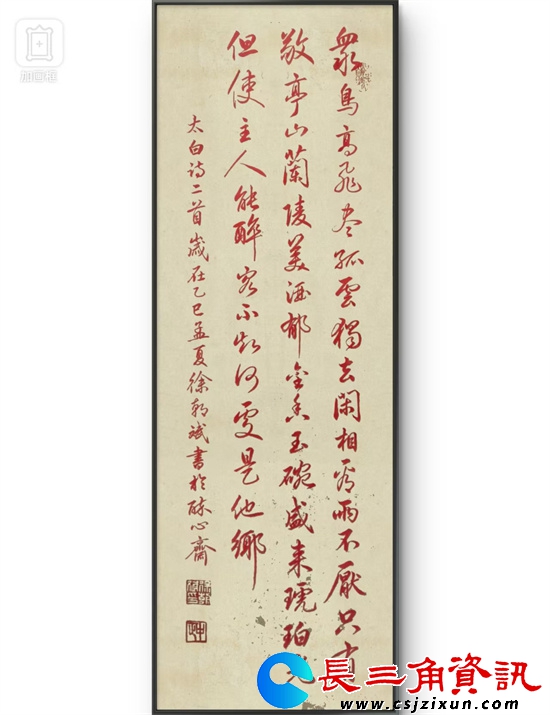 加画框
眾鳥高飛盡孤雲獨去閑相看兩不厭只有
敬亭山蘭陵美酒郁金香玉碗盛來琥珀光
但使主人能醉客不知何處是他鄉
太白诗二首歲在乙巳孟夏徐朝斌書於酥心齋
長三角資訊
www.csjzixun.com